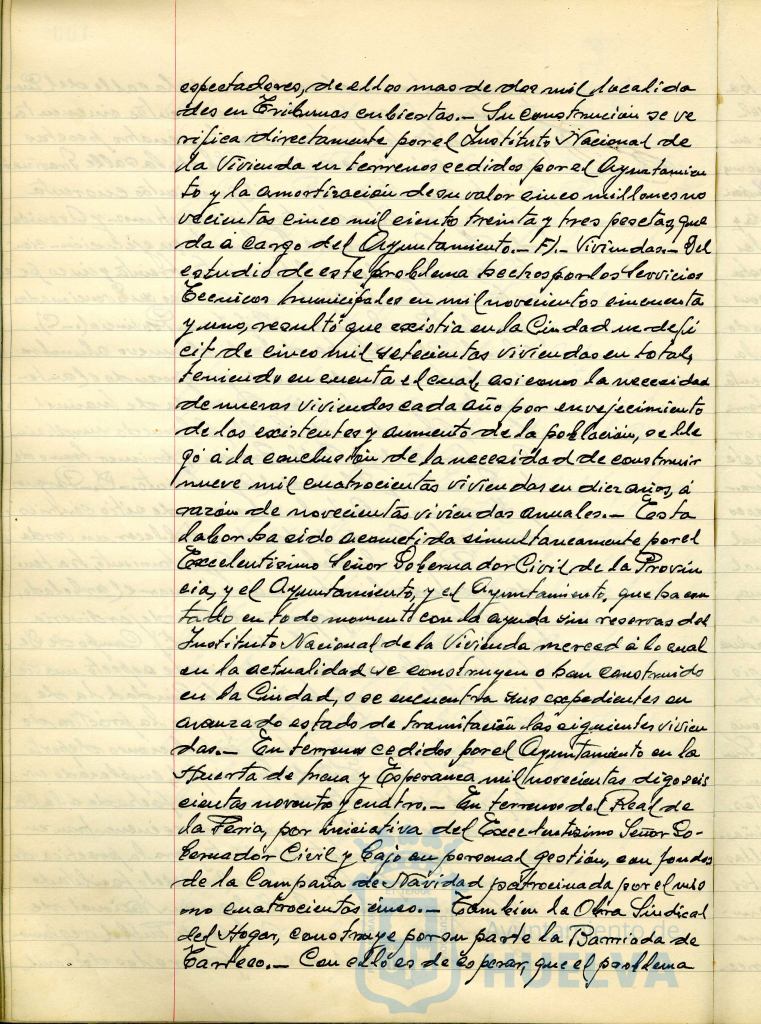 espectadores, de ellos mas de dos mil localida
des en Tribunas cubiertas.- Su construcion se ve
rifica directamente por el Instituto Nacional de
la Vivienda en terrenos cedidos por el Ayuntamien
to y la amortizacion de su valor cinco millones no
vecientas cinco mil ciento treinta y tres pesetas, que
da á cargo del Ayuntamiento.- F).- Viviendas.- Del
estudio de este problema hechos por los Servicios
Tecnicos Municipales en mil novecientos cincuenta
y uno, resultó que existia en la Ciudad un defi
cit de cinco mil setecientas viviendas en total,
teniendo en cuenta el cual, asi como la necesidad
de nuevas viviendas cada año por envejecimiento
de las existentes y aumento de la población, se lle
gó á la conclusión de la necesidad de construir
nueve mil cuatrocientas viviendas en diez años, á
razón de novecientas viviendas anuales.- Esta
labor ha sido acometida simultaneamente por el
Excelentisimo Señor Gobernador Civil de la Provin
cia, y el Ayuntamiento, y el Ayuntamiento, que ha con
tado en todo momento con la ayuda sin reservas del
Instituto Nacional de la Vivienda merced á lo cual
en la actualidad se construyen o han construido
en la Ciudad, o se encuentra sus expedientes en
avanzado estado de tramitación las siguientes vivien
das.- En terrenos cedidos por el Ayuntamiento en la
Huerta de Mena y Esperanza mil novecientas digo seis
cientas noventa y cuatro.- En terrenos del Real de
la Feria, por iniciativa del Excelentisimo Señor Go-
bernador Civil y bajo su personal gestión, con fondos
de la Campaña de Navidad patrocinada por el mis
mo cuatrocientas cinco.- Tambien la Obra Sindical
del Hogar, construye por su parte la Barriada de
Ayuntamiento de
HUELVA
Con ello es de esperar, que el problema